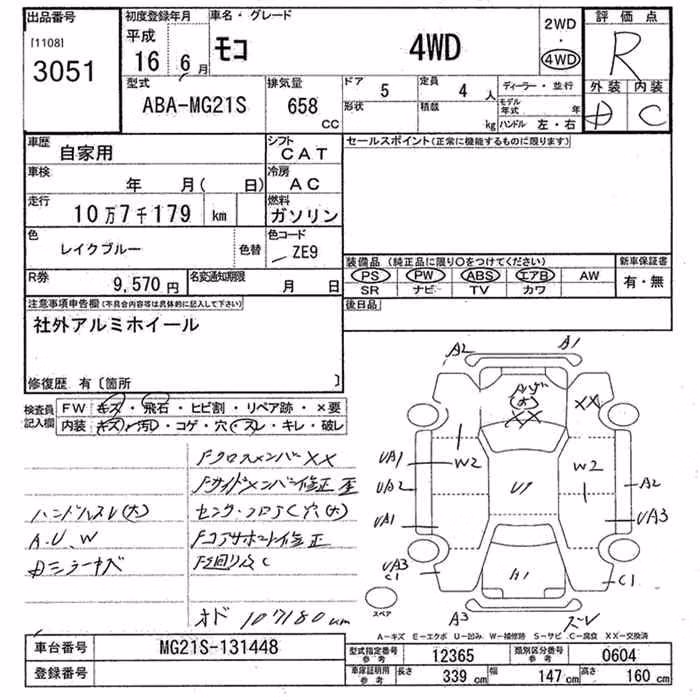 出品番号
[1108]
3051
初度登録年月
平成
16 6 月
車名・グレード
モコ 4WD
2WD
・
4WD
評価点
R
外装 内装
D C
型式
ABA-MG21S
排気量
658
CC
ドア 5
定員 4 人
形状
積載 kg
ディーラー・並行
モデル年式 年
ハンドル 左・右
車歴
自家用
シフト
CAT
車検
年 月( 日)
冷房
AC
走行
10万7千179 km
燃料
ガソリン
色
レイクブルー
色替
色コード
ZE9
R券
9,570 円
名変通知期限
月 日
セールスポイント(正常に機能するものに限ります)
装備品 (純正品に限り○をつけてください)
PS PW ABS エアB AW
SR ナビ TV カワ
新車保証書
有・無
後日品
注意事項申告欄(不具合内容等は具体的に記入して下さい)
社外アルミホイール
修復歴 有〔箇所 〕
検査員記入欄
FW キズ・飛石・ヒビ割・リペア跡・×要
内装 キズ・汚レ・コゲ・穴・スレ・キレ・破レ
FクロスメンバーXX
Fサイドメンバー修正歪
ハンドルスレ(大)
センターフロアSC穴(大)
A.U.W
Fコアサポート修正
Dミラーキズ
F廻りSC
オド 107180km
A2 A1
XX
XX
UA1 W2 W2
UA2 U1 A2
UA1 UA3
UA3
C1 A1 C1
A3 ズレ
スペア
A-キズ E-エクボ U-凹み W-補修跡 S-サビ C-腐食 XX-交換済
車台番号
MG21S-131448
登録番号
型式指定番号
参考
12365
類別区分番号
参考
0604
車庫証明用
参考
長さ 339 cm 幅 147 cm 高さ 160 cm